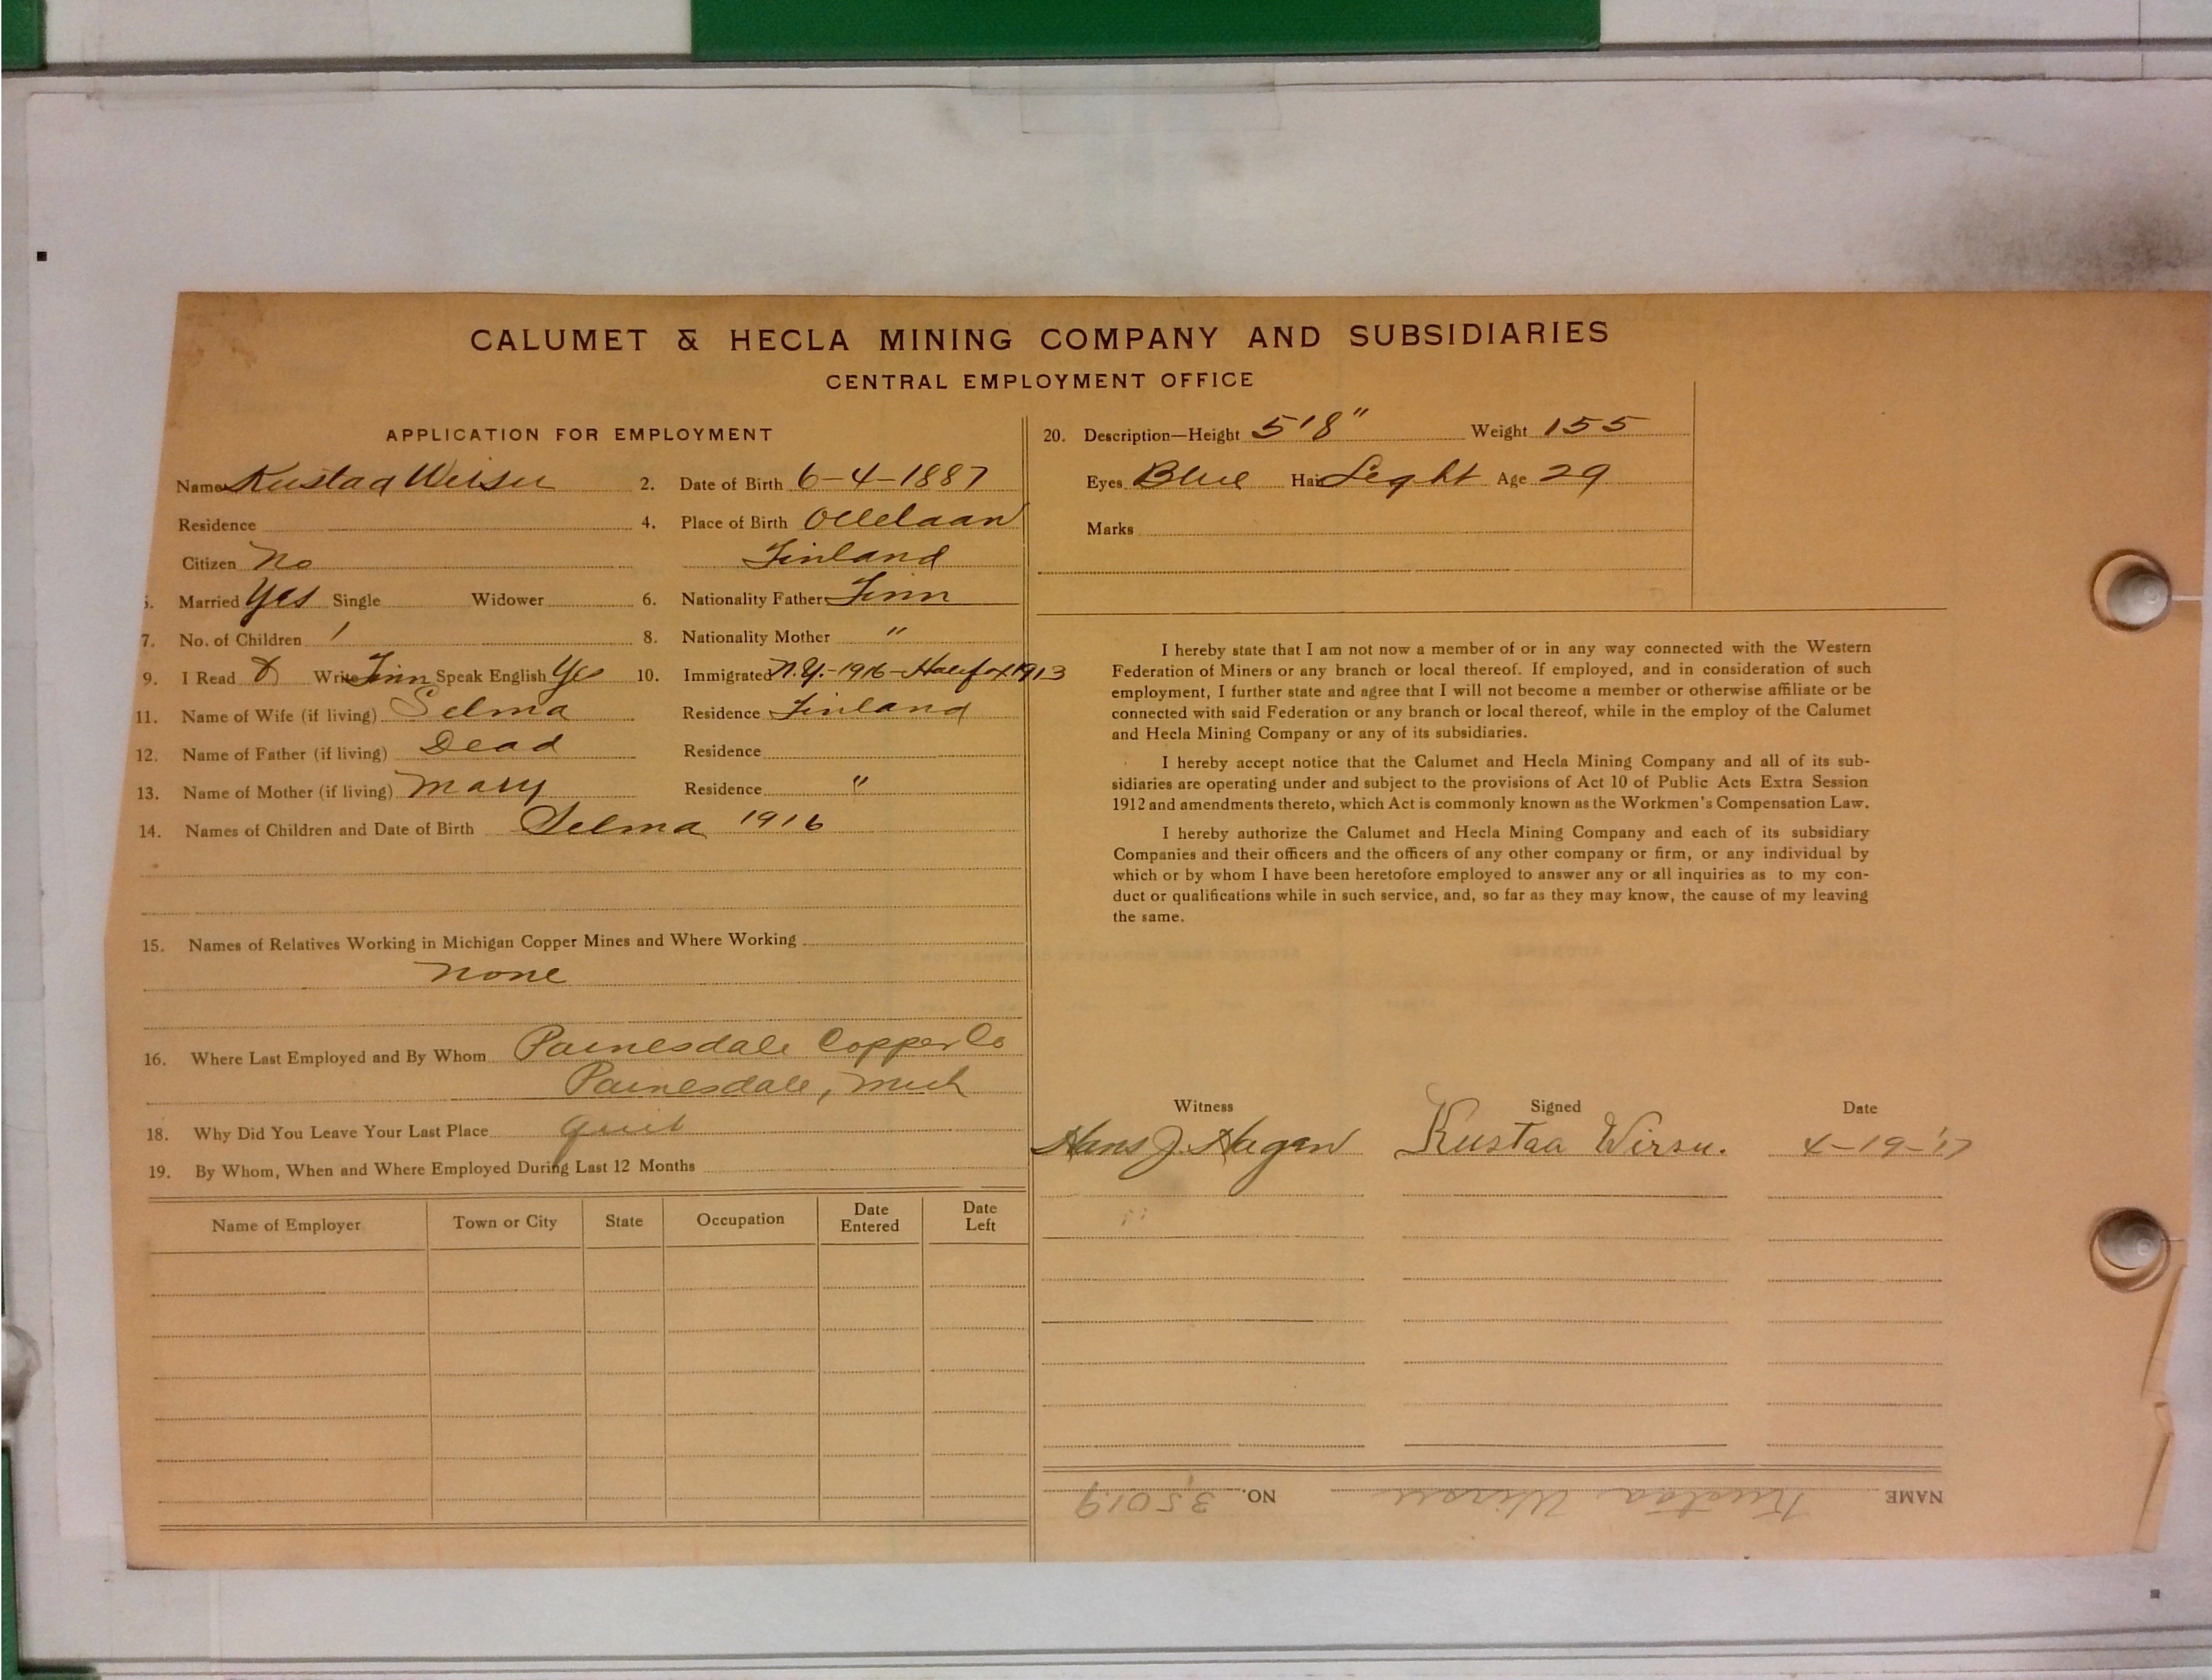 CALUMET & HECLA MINING COMPANY AND SUBSIDIARIES
CENTRAL EMPLOYMENT OFFICE
APPLICATION FOR EMPLOYMENT
Name Kustaa Wirsu 2. Date of Birth 6-4-1887
Residence 4. Place of Birth
Citizen No Finland
5. Married Yes Single Widower 6. Nationality Father Finn
7. No. of Children 1 8. Nationality Mother "
9. I Read & Write Finn Speak English Yes 10. Immigrated N.Y.-1916-Halifax 1913
11. Name of Wife (if living) Selma Residence Finland
12. Name of Father (if living) Dead Residence
13. Name of Mother (if living) Mary Residence "
14. Names of Children and Date of Birth Selma 1916
15. Names of Relatives Working in Michigan Copper Mines and Where Working
None
16. Where Last Employed and By Whom Painesdale Copper Co
Painesdale, Mich
18. Why Did You Leave Your Last Place quit
19. By Whom, When and Where Employed During Last 12 Months
Name of Employer Town or City State Occupation Date Entered Date Left
20. Description—Height 5'8" Weight 155
Eyes Blue Hair Light Age 29
Marks
I hereby state that I am not now a member of or in any way connected with the Western
Federation of Miners or any branch or local thereof. If employed, and in consideration of such
employment, I further state and agree that I will not become a member or otherwise affiliate or be
connected with said Federation or any branch or local thereof, while in the employ of the Calumet
and Hecla Mining Company or any of its subsidiaries.
I hereby accept notice that the Calumet and Hecla Mining Company and all of its sub-
sidiaries are operating under and subject to the provisions of Act 10 of Public Acts Extra Session
1912 and amendments thereto, which Act is commonly known as the Workmen's Compensation Law.
I hereby authorize the Calumet and Hecla Mining Company and each of its subsidiary
Companies and their officers and the officers of any other company or firm, or any individual by
which or by whom I have been heretofore employed to answer any or all inquiries as to my con-
duct or qualifications while in such service, and, so far as they may know, the cause of my leaving
the same.
Witness Signed Date
Hans J. Hagan Kustaa Wirsu. 4-19-'17
NAME Kustaa Wirsu NO. 35019